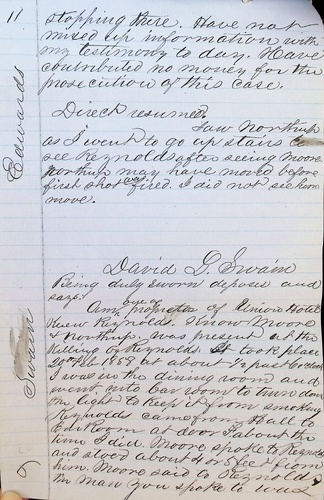 11
stopping there. Have not
mixed up information with
my testimony to day. Have
contributed no money for the
prosecution of this case.
Edwards
Direct resumed.
Saw Northup
as I went to go up stairs to
see Reynolds after seeing Moore
Northup may have moved before
first shot was fired. I did not see him
move.
David G. Swain
Being duly sworn deposes and
says:
Am one of proprietor of Union Hotel
Knew Reynolds. I know Moore
& Northup. Was present at the
killing of Reynolds. It took place
at about ½ past 6 o'clock
I was in the dining room and
went into bar room to turn down
the light to keep it from smoking
Reynolds came from Hall to
Bar Room at door about the
time I did. Moore spoke to Reynolds
and stood about 4 or 5 feet from
him. Moore said to Reynolds
man you spoke to was
Swain